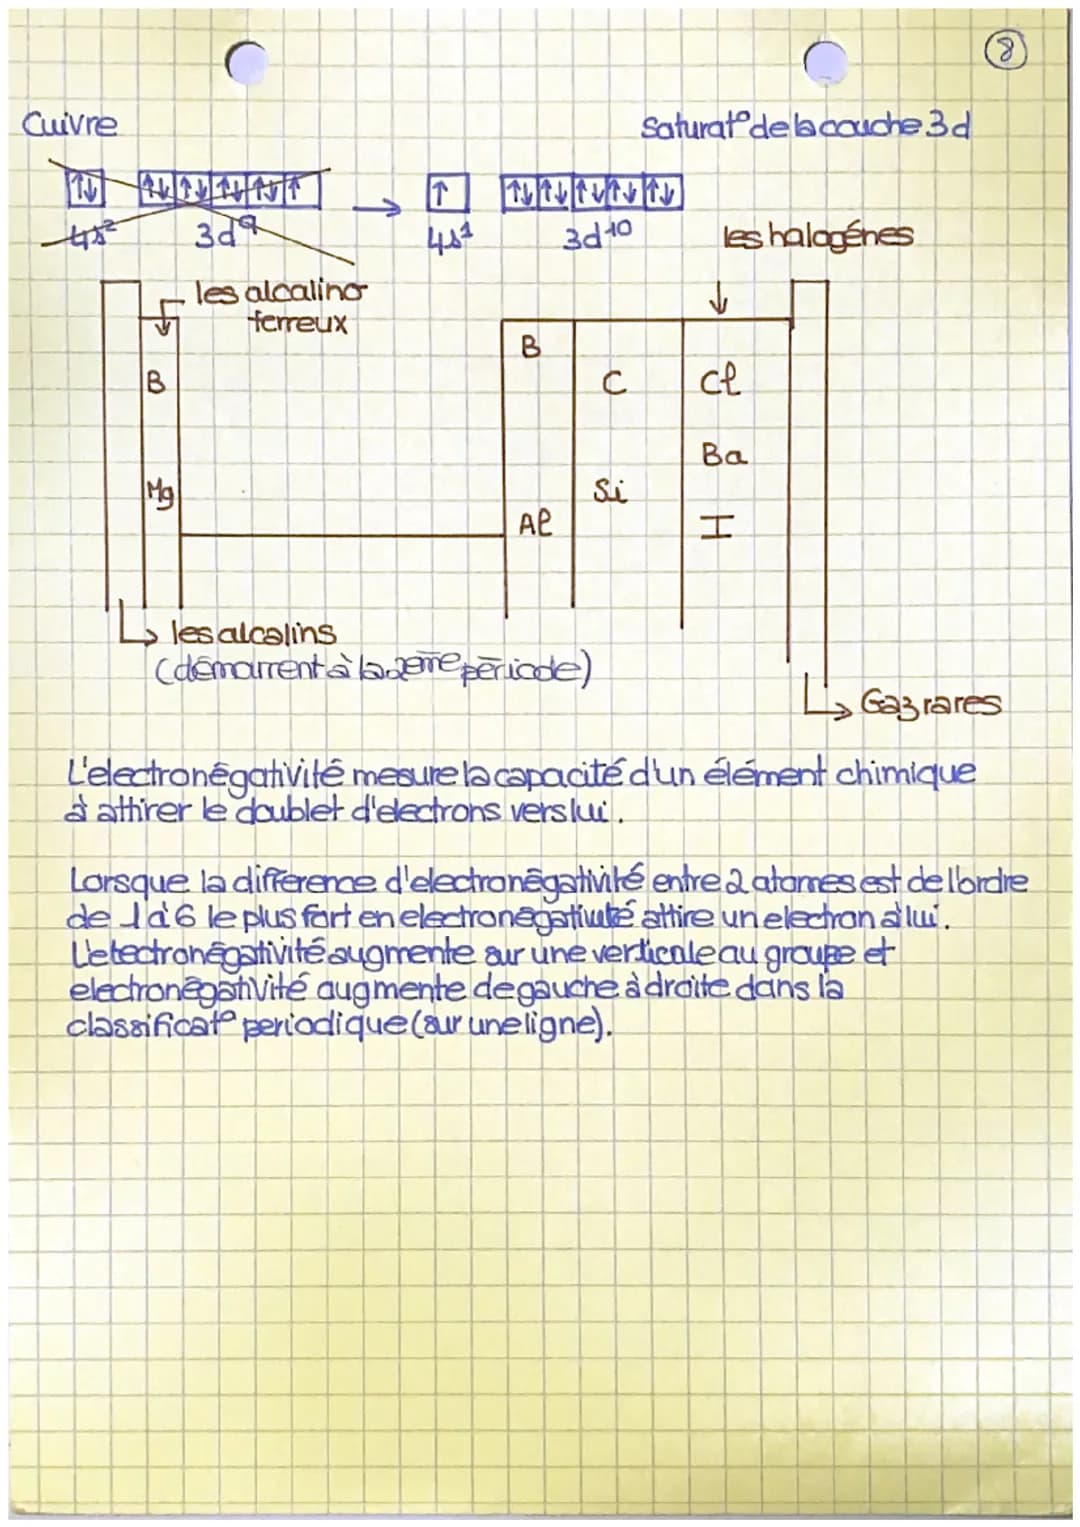 8
Cuivre
Saturat° de la couche 3d
↑↓ ↑↓ ↑↓ ↑↓ ↑↓ ↑ → ↑ ↑↓ ↑↓ ↑↓ ↑↓ ↑↓
4s² 3d⁹ 4s¹ 3d¹⁰
les halogénes
les alcalino
terreux
B
B
C
Cl
Ba
Mg
Si
Al
I
les alcalins
(démarrent à la 2eme période)
Gaz rares
L'electronégativité mesure la capacité d'un élément chimique
à attirer le doublet d'electrons vers lui.
Lorsque la différence d'electronégativité entre 2 atomes est de l'ordre
de 1 à 6 le plus fort en electronégativité attire un electron à lui.
L'electronégativité augmente sur une verticale au groupe et
electronégativité augmente de gauche à droite dans la
classificat° periodique (sur une ligne).